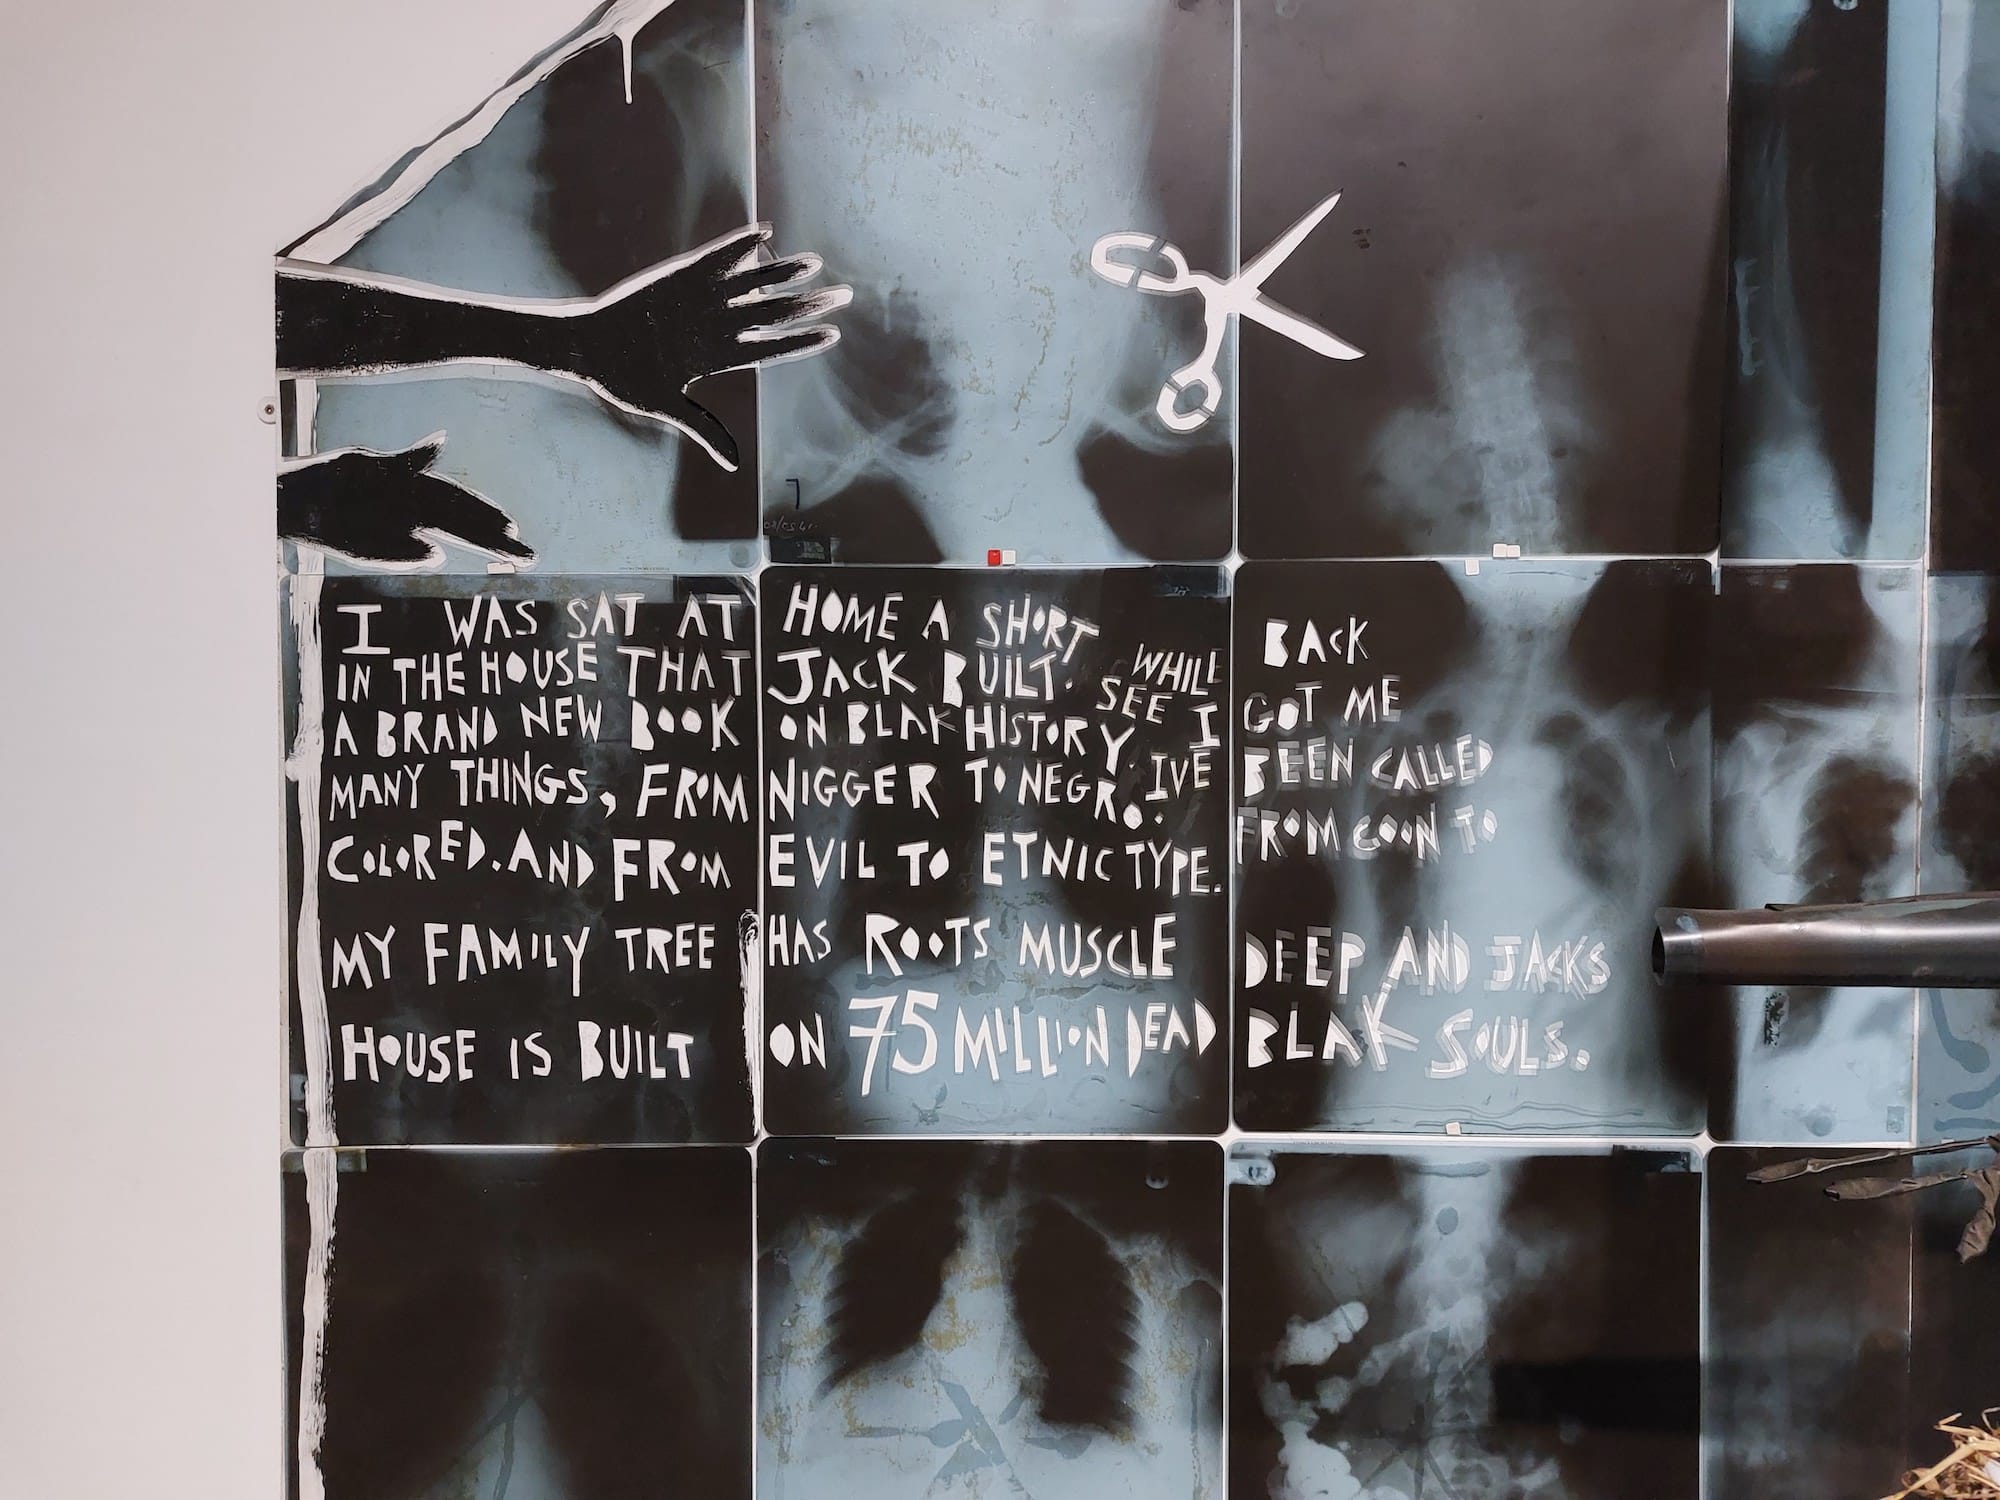 7
I WAS SAT AT HOME A SHORT WHILE BACK
IN THE HOUSE THAT JACK BUILT. SEE I GOT ME
A BRAND NEW BOOK ON BLAK HISTORY. IVE BEEN CALLED
MANY THINGS, FROM NIGGER TO NEGRO. FROM COON TO
COLORED. AND FROM EVIL TO ETNIC TYPE.
MY FAMILY TREE HAS ROOTS MUSCLE DEEP AND JACKS
HOUSE IS BUILT ON 75 MILLION DEAD BLAK SOULS.